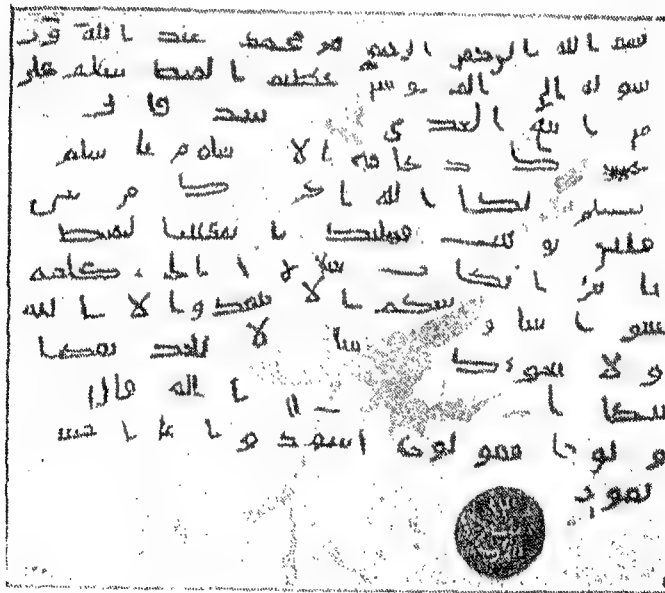 بسم الله الرحمن الرحيم من محمد عبد الله ور
سوله الى المقوقس عظيم القبط سلام على
من اتبع الهدى اما بعد فانى
ادعوك بدعاية الاسلام اسلم
تسلم يوتك الله اجرك مرتين
فان توليت فعليك اثم القبط
يا اهل الكتاب تعالوا الى كلمة
سوا بيننا وبينكم الا نعبد الا الله
ولا نشرك به شيا ولا يتخذ بعضنا
بعضا اربابا من دون الله فان
تولوا فقولوا اشهدوا بانا مسل
مون